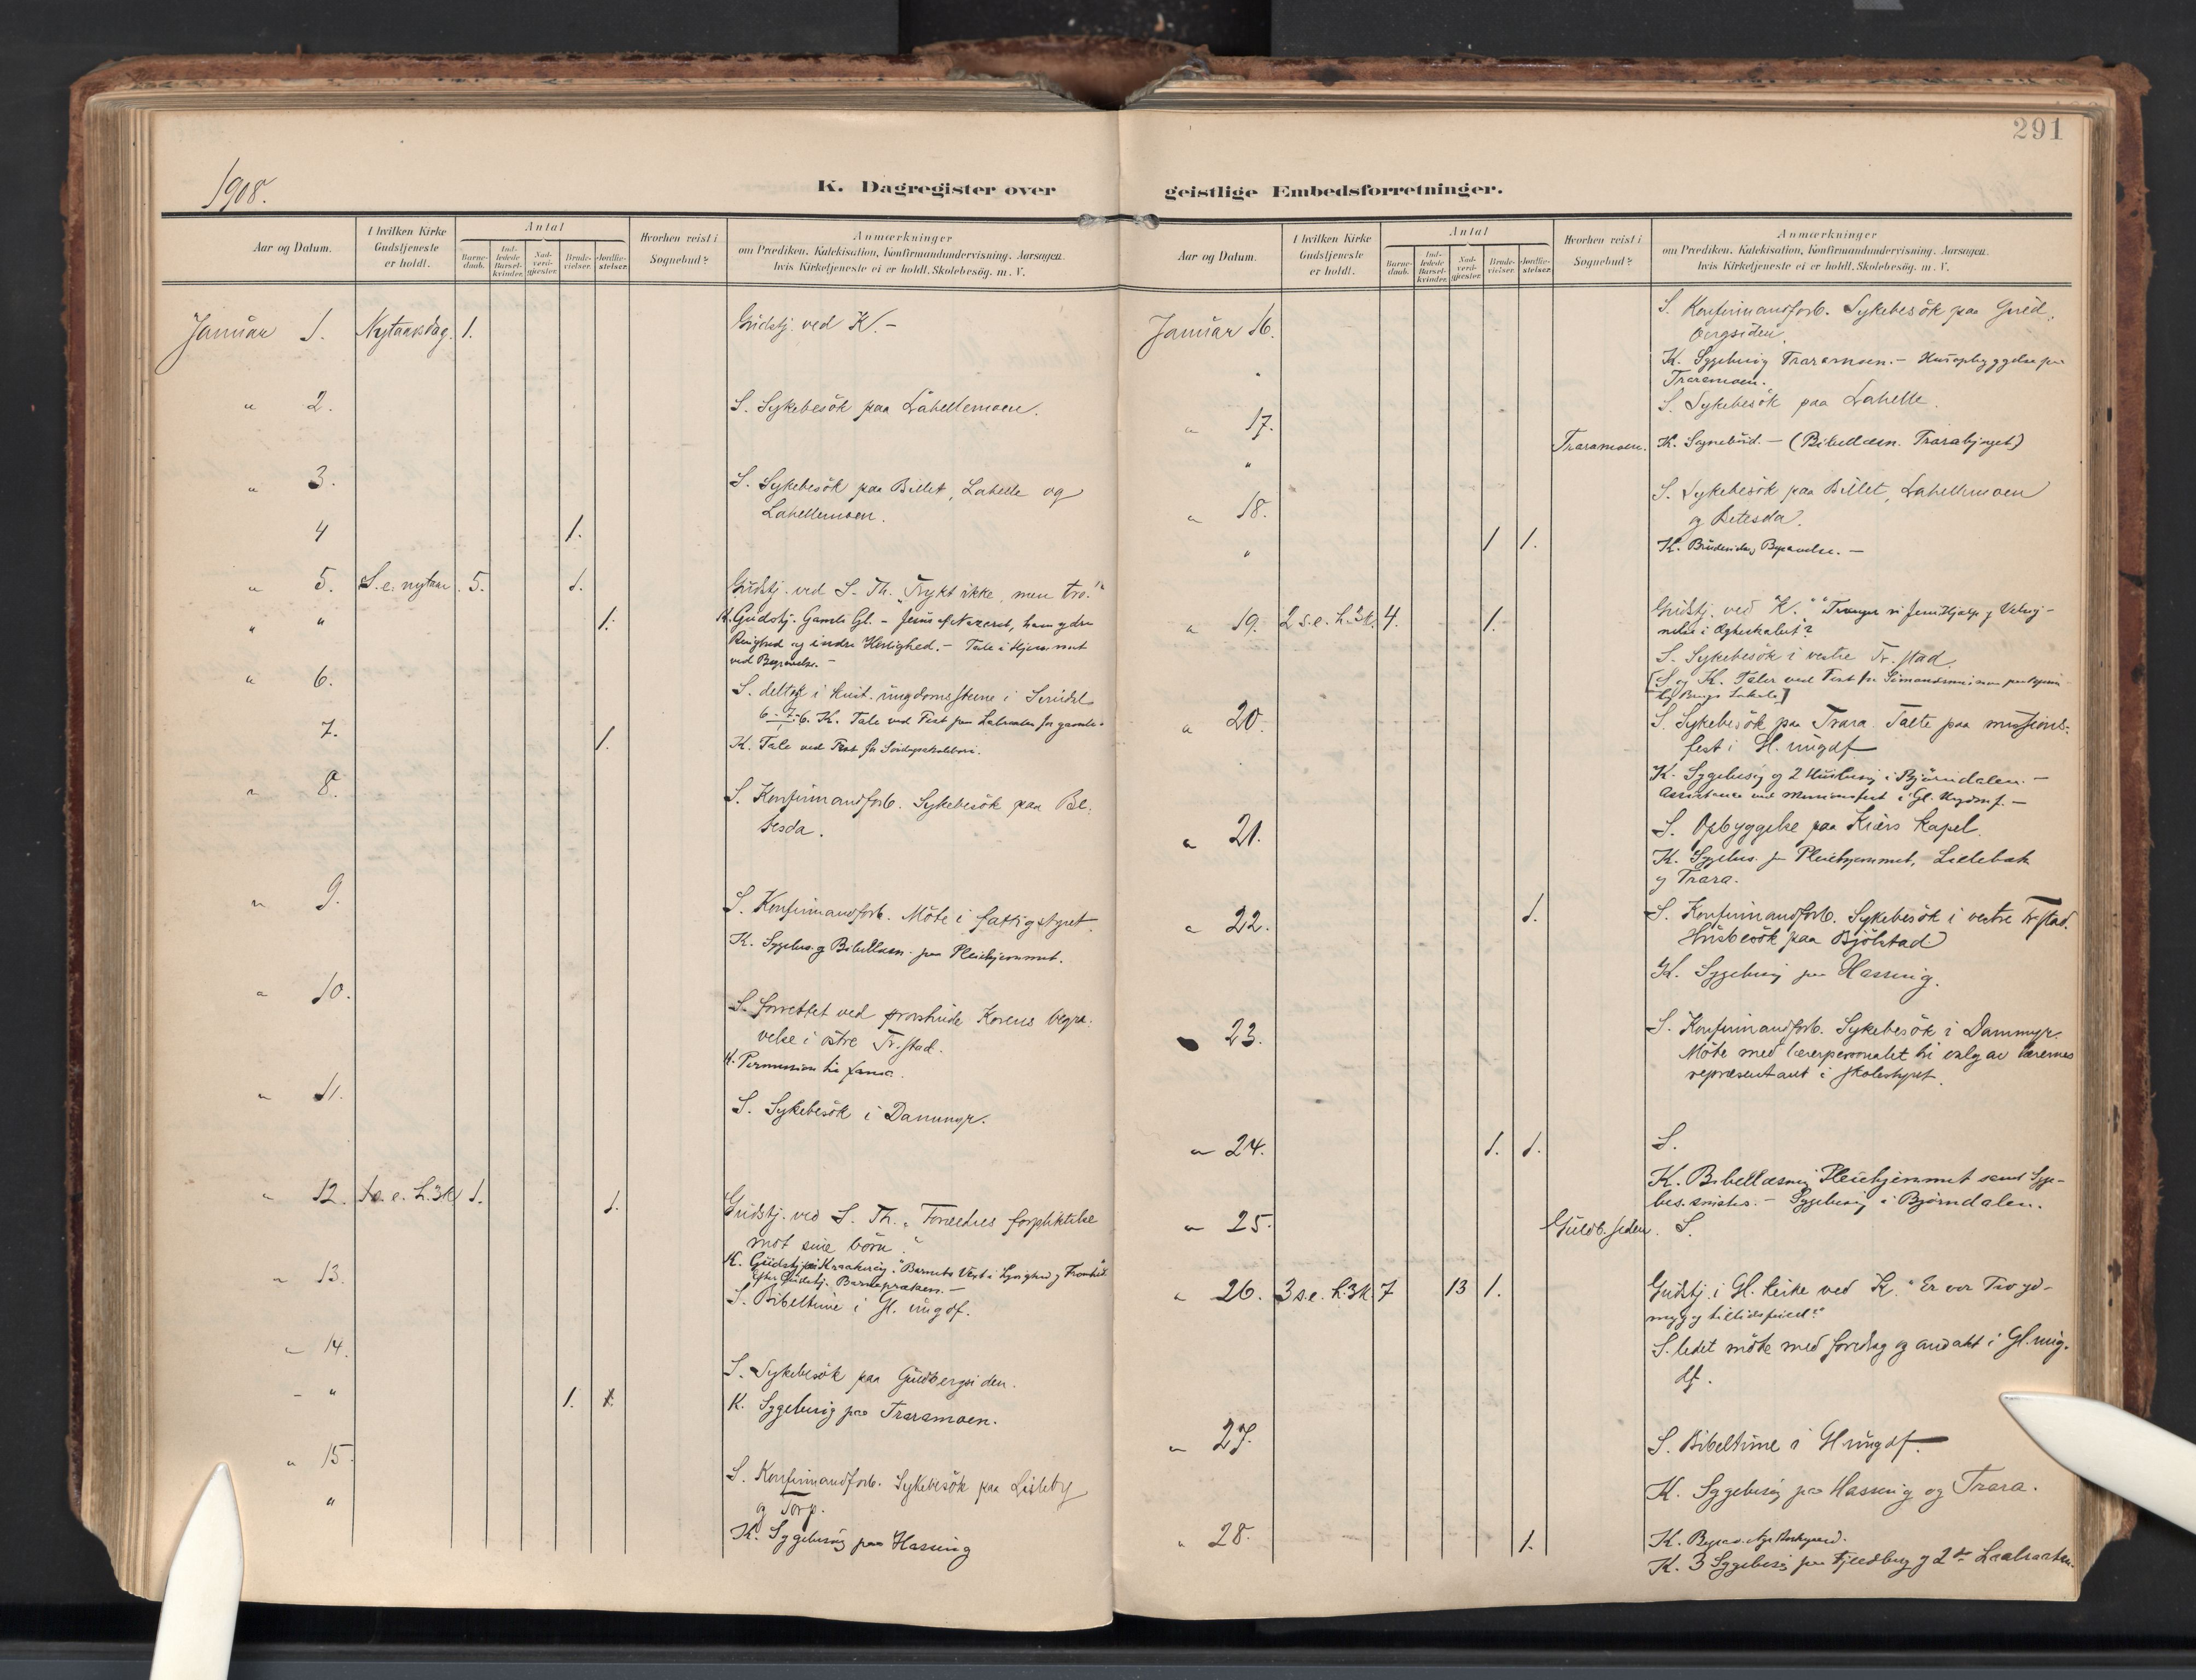 291
1908.
K. Dagregister over geistlige Embedsforretninger.
Aar og Datum.
I hvilken Kirke Gudstjeneste er holdt.
Antal
Barne-daab.
Ind-ledede Barsel-kvinder.
Nad-verd-gjester.
Brude-vielser.
Jordfæ-stelser.
Hvorhen reist i Sognebud?
Anmærkninger
om Prædiken, Katekisation, Konfirmandundervisning, Aarsagen,
hvis Kirketjeneste ei er holdt, Skolebesøg. m. V.
Januar 1. Nytaarsdag. 1. Gudstj. ved K. -
" 2. S. Sykebesök paa Labellemoen.
" 3. S. Sykebesök paa Billet, Labelle og
Labellemoen.
4 1.
" 5. S. e. nytaar. 5. 1. Gudstj. ved S. Th. "Frykt ikke, men tro."
" " 1. K. Gudstj. Gamle Gl. - Jesus af Nazaret, hans ydre
Ringhed og indre Herlighed. - Tale i Hjemmet
ved Begravelse. -
" 6. S. deltok i
K. Tale ved Fest
7. 1. K. Tale ved Fest for
" 8. S. Konfirmandforb. Sykebesök paa Be-
tesda.
" 9. S. Konfirmandforb. Möte i fattigstyret.
K. Sygebes. og Bibellæsn. paa Pleiehjemmet.
" 10. S. forrettet ved Korens begra-
velse i östre Fr.stad.
K. Permission
" 11. S. Sykebesök i Dammyr.
" 12. 1 s. e. h. 3 k. 1. 1. Gudstj. ved S. Th. "Foreldres forpliktelse
mot sine börn."
K. Gudstj. paa Kraakeröy. "Barnets Vext i
Efter Gudstj. Barnepræken. -
" 13. S. Bibeltime i Gl. ungdf.
" 14. S. Sykebesök paa Guldbergsiden.
- " 1. K. Sygebesøg paa Traramoen.
" 15. S. Konfirmandforb. Sykebesök paa Lisleby
og Torp.
" K. Sygebesøg paa Hassing
Aar og Datum.
I hvilken Kirke Gudstjeneste er holdt.
Antal
Barne-daab.
Ind-ledede Barsel-kvinder.
Nad-verd-gjester.
Brude-vielser.
Jordfæ-stelser.
Hvorhen reist i Sognebud?
Anmærkninger
om Prædiken, Katekisation, Konfirmandundervisning, Aarsagen,
hvis Kirketjeneste ei er holdt, Skolebesøg. m. V.
Januar 16. S. Konfirmandforb. Sykebesök paa Guld-
bergsiden.
K. Sygebesøg Traramoen. - Husopbyggelse paa
Traramoen.
" 17. S. Sykebesök paa Labelle.
" Traramoen. K. Sognebud. - (Bibellæsn. Trarabjerget)
" 18. S. Sykebesök paa Billet, Labellemoen
og Betesda.
" 1 1. K. Begravelse. -
" 19. 2 s. e. h. 3 k. 4. 1. Gudstj. ved K. "Trænger vi Jesu Hjælp og Velsig-
nelse i Ægteskabet"?
S. Sykebesök i vestre Fr.stad.
[S og K. Taler ved Fest for
" 20. S. Sykebesök paa Trara. Talte paa missions-
fest i Gl. ungdf
K. Sygebesøg og 2 Husbesøg i Bjørndalen. -
Assistance ved Missionsfest i Gl. Ungdomsf. -
" 21. S. Opbyggelse paa Kiærs Kapel.
K. Sygebes. paa Pleiehjemmet, Lislebak
og Trara.
" 22. 1. S. Konfirmandforb. Sykebesök i vestre Fr.stad.
Husbesök paa Bjölstad
K. Sygebesøg paa Hassing.
23. S. Konfirmandforb. Sykebesök i Dammyr.
Möte med lærerpersonalet til valg av lærernes
representant i skolestyret.
" 24. 1. 1. S.
K. Bibellæsning Pleiehjemmet samt Syge-
bes. - Sygebesøg i Bjørndalen.
" 25. Guldb.siden. S.
" 26. 3 s. e. h. 3 k. 7 13 1. Gudstj. i Gl. kirke ved K. "Er vor Tro yd-
myg og tillidsfuld?"
S. ledet möte med foredrag og andakt i Gl. ung-
df.
" 27. S. Bibeltime i Gl ungdf.
K. Sygebesøg paa Hassing og Trara.
" 28. 1. K.
K. 3 Sygebesøg paa Fjeldberg og 2